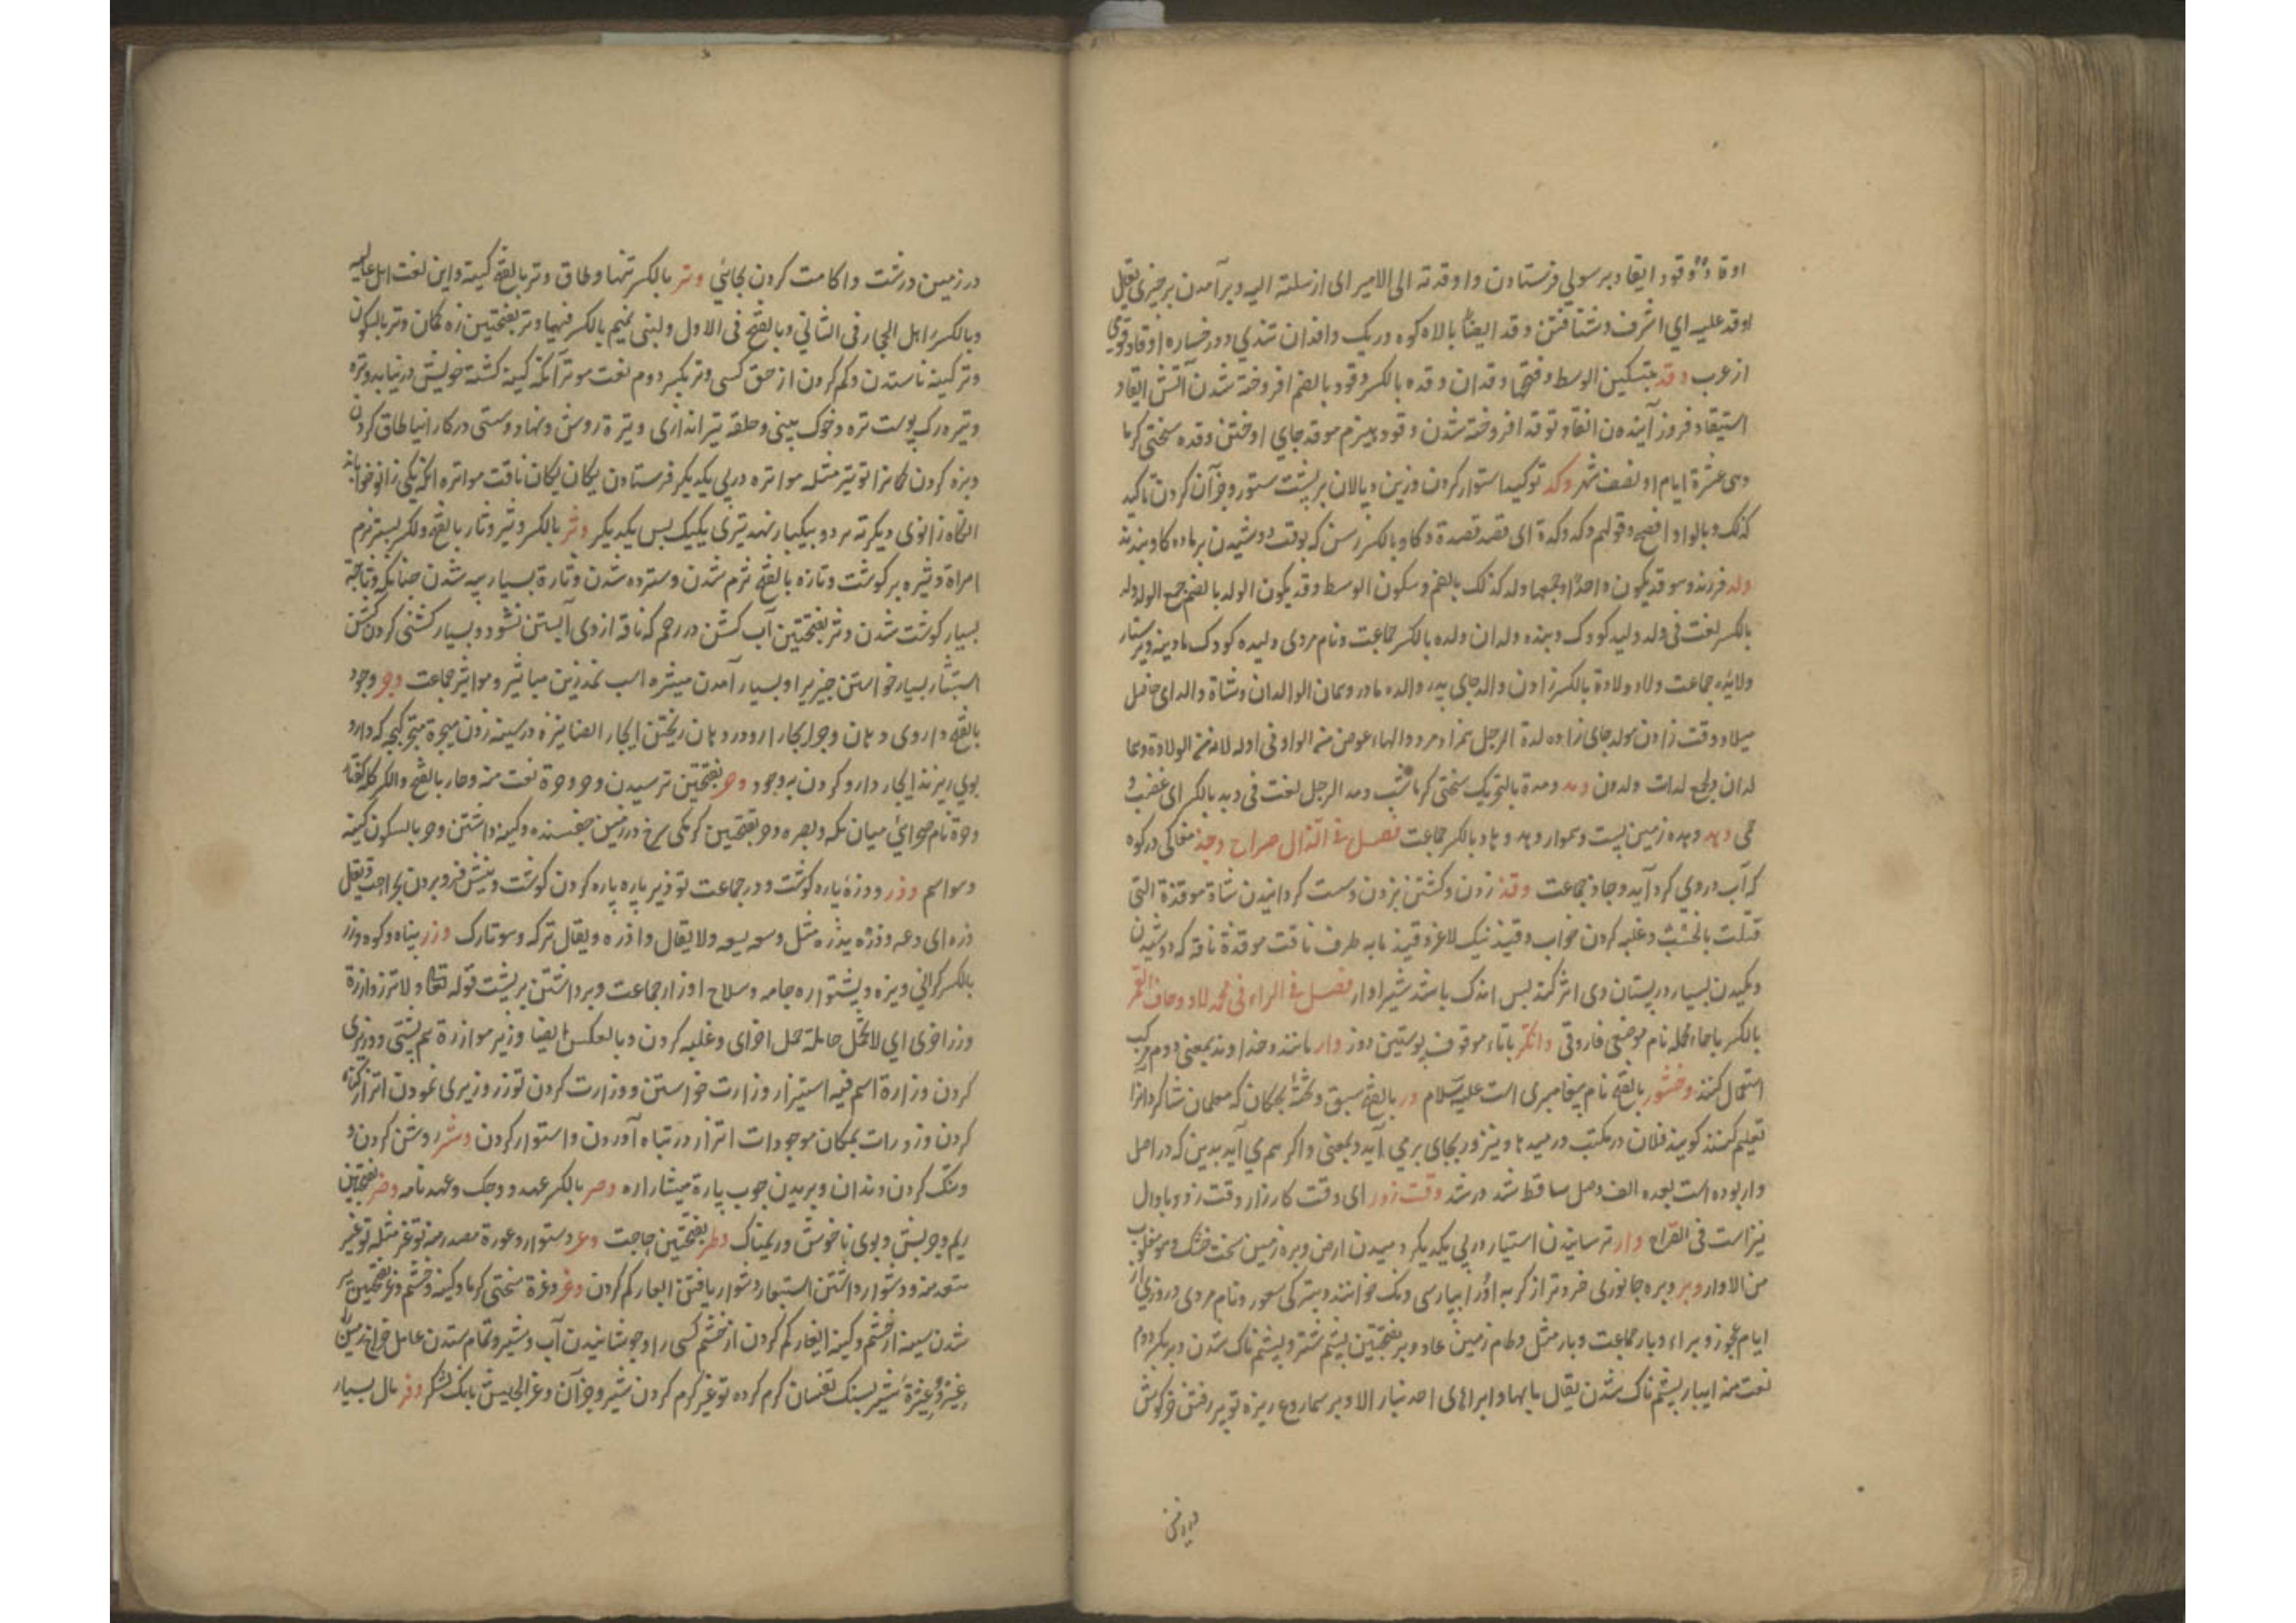 اوفاد وفود ایفاد برسولي فرستادن واوفدته الی الامیر ای ارسلته الیه وبرآمدن برچیزی یقل
اوفد علیه ای اشرف وشتافتن وفد ایضاً بالاء کوه ریک وافدان تندي دو رخساره اوفاد قومی
از عرب وقد بتسکین الوسط وفتحها وقدان وقده بالکسر وقود بالضم افروخته شدن آتش ایقاد
استیقاد فروزانیدن اتقاد توقد افروخته شدن وقود هیزم موقد جای افروختن وقده سختی کرما
وهی عشرة ایام او نصف شهر وکد توکید استوار کردن وزین وپالان برپشت ستور وجزآن کردن تاکید
کذلک وبالواو افصح وقولهم وکد وکدة ای قصد قصده وکاد بالکسر رسن که بوقت دوشیدن برماده کاو بندند
ولد فرزند وهو قد یکون واحدا وجمعا ولد کذلک بالضم وسکون الوسط وقد یکون الولد بالضم جمع الولد ولد
بالکسر لغت فی ولد ولید کودک وبنده ولدان ولده بالکسر جماعت ونام مردی ولیده کودک مادینه وپرستار
ولایده جماعت ولاد ولادة بالکسر زادن والد بجای پدر والده مادر وهمان الوالدان وشاة والد ای حامل
میلاد وقت زادن مولد جای زاده لدة الرجل همزاد مرد والهاء عوض من الواو فی اوله لانه من الولادة وهما
لدان وجمع لدات ولدون ومد ومدة بالتحریک سختی کرما شب ومد الرجل لغت فی وبد بالکسر ای غضب و
حمی وهد وهده زمین پست وهموار وهد وهاد بالکسر جماعت فصل فی الذال صراح وجذ مغاکی در کوه
که آب دروی کرد آید وجاذ جماعت وقذ زدن وکشتن بزدن وسست کردانیدن شاة موقوذة التی
قتلت بالخشب وغلبه کردن خواب وقیذ نیک لاغر وقیذ مابه طرف ناقت موقذة ناقه که دوشیدن
ومکیدن بسیار در پستان وی اثر کند پس اندک باشد شیر او فصل فی الراء فی محمد لاد وحاف القمر
بالکسر باحاء مهمله نام موضعی فاروقی واتکر باتاء موقوف پوستین دوز وار مانند وخداوند بمعنی دوم مرکب
استعمال کنند وخشور بالفتح نام پیغامبری است علیه السلام ور بالفتح سبق وتخته بچکان که معلمان شاکردانرا
تعلیم کنند کویند فلان در مکتب ور میدهد ونیز ور بجای بر می آید وبمعنی واکر هم می آید بدین که در اصل
وار بوده است بعده الف وصل ساقط شد ور شد وقت زور ای وقت کارزار وقت زور وبا دال
نیز است فی القراح وار ترسانیدن استیار در پی یکدیکر دمیدن ارض وبره زمین سخت خشک وهو مقلوب
من الاوار وبر وبره جانوری خردتر از کربه اورا بپارسی ونک خوانند وبترکی سمور ونام مردی وروزي از
ایام عجوز وبراء وبار جماعت وبار مثل وطام زمین عاد وبر بفتحتین پشم شتر وپشم ناک شدن وبر بکسر دوم
نعت منه ایبار پشم ناک شدن یقال مابها وابر ای احد نبار الاوبر سماروغ ریزه توبیر رفتن خرکوش
در زمین درشت واکامت کردن بجایٔي وتر بالکسر تنها وطاق وتر بالفتح کینه واین لغت اهل عالیه
وبالکسر اهل الحجاز فی الثانی وبالفتح فی الاول ولبنی تمیم بالکسر فیهما وتر بفتحتین زه کمان وتر بالسکون
وترکینه ناستدن وکم کردن از حق کسی وتر بکسر دوم نعت موتر آنکه کینه کشته خویش درنیابد وتره
وتیره رک پوست تره وخوک بینی وحلقه تیراندازی وتیرة روش ونهاد وسستی در کار ایتار طاق کردن
وبزه کردن کمانرا توتیر مثله مواتره درپی یکدیکر فرستادن یکان یکان ناقت مواتره آنکه یکی زانو خواباند
آنکاه زانوی دیکر نه هر دو بیکبار نهد تتری یکیک پس یکدیکر وثر بالکسر وثیر وثار بالفتح والکسر بستر نرم
امراة وثیره پر کوشت وتازه بالفتح نرم شدن وسترده شدن وثارة بسیار پیه شدن چنانکه وثاجة
بسیار کوشت شدن وثر بفتحتین آب کشن در رحم که ناقه از وی آبستن نشود وبسیار کشنی کردن کشن
استیثار بسیار خواستن چیزیرا وبسیار آمدن میثره اسب نمدزین میاثر ومواثر جماعت وجر وجور
بالفتح داروی دهان وجرایجار دارو در دهان ریختن ایجار ایضا نیزه در سینه زدن میجرة میجر کپچه که دارو
بوي ریزند ایجار دارو کردن به وجور وجر بفتحتین ترسیدن وجر وجرة نعت منه وجار بالفتح والکسر کله کفتار
وجرة نام صحرائی میان مکه وبصره وحر بفتحتین کرمکی سرخ در زمین چفسنده وکینه داشتن وحر بالسکون کینه
وهو اسم وذر ووذرة پاره کوشت وذر جماعت توذیر پاره پاره کردن کوشت ونیش فروبردن بجراحت ویقل
ذره ای دعه وذره یذره مثل وسعه یسعه ولا یقال واذره ویقال ترکه وهو تارک وزر پناه وکوه وزر
بالکسر کرانی وبزه وپشتواره جامه وسلاح اوزار جماعت وبرداشتن برپشت قوله تعالی ولا تزر وازرة
وزر اخری ای لا تحمل حاملة حمل اخرای وغلبه کردن وبالعکس ایضا وزیر موازرة هم پشتی ووزیری
کردن وزارة اسم فیه استیزار وزارت خواستن ووزارت کردن توزر وزیری نمودن اتزار کناه
کردن وزورات بمکان موجودات اتزار درتباه آوردن واستوار کردن وشر روشن کردن و
وتنک کردن دندان وبریدن چوب پارة میشار اره وصر بالکسر عهد ووچک وعهدنامه وضر بفتحتین
ریم وچربش وبوی ناخوش وریمناک وطر بفتحتین حاجت وعر دشوار وعورة مصدر منه توعر مثله توعیر
متعد منه ودشوار داشتن استیعار دشوار یافتن ایعار کم کردن وغر وغرة سختی کرما وکینه وخشم وغر بفتحتین پر
شدن سینه از خشم وکینه ایغار کم کردن از خشم کسی را وجوشانیدن آب وشیر وتمام ستدن عامل خراج زمین
وغیر وغیرة شیر بسنک تفسان کرم کرده توغیر کرم کردن شیر وجزآن وغر الجیش بانک لشکر وفر مال بسیار